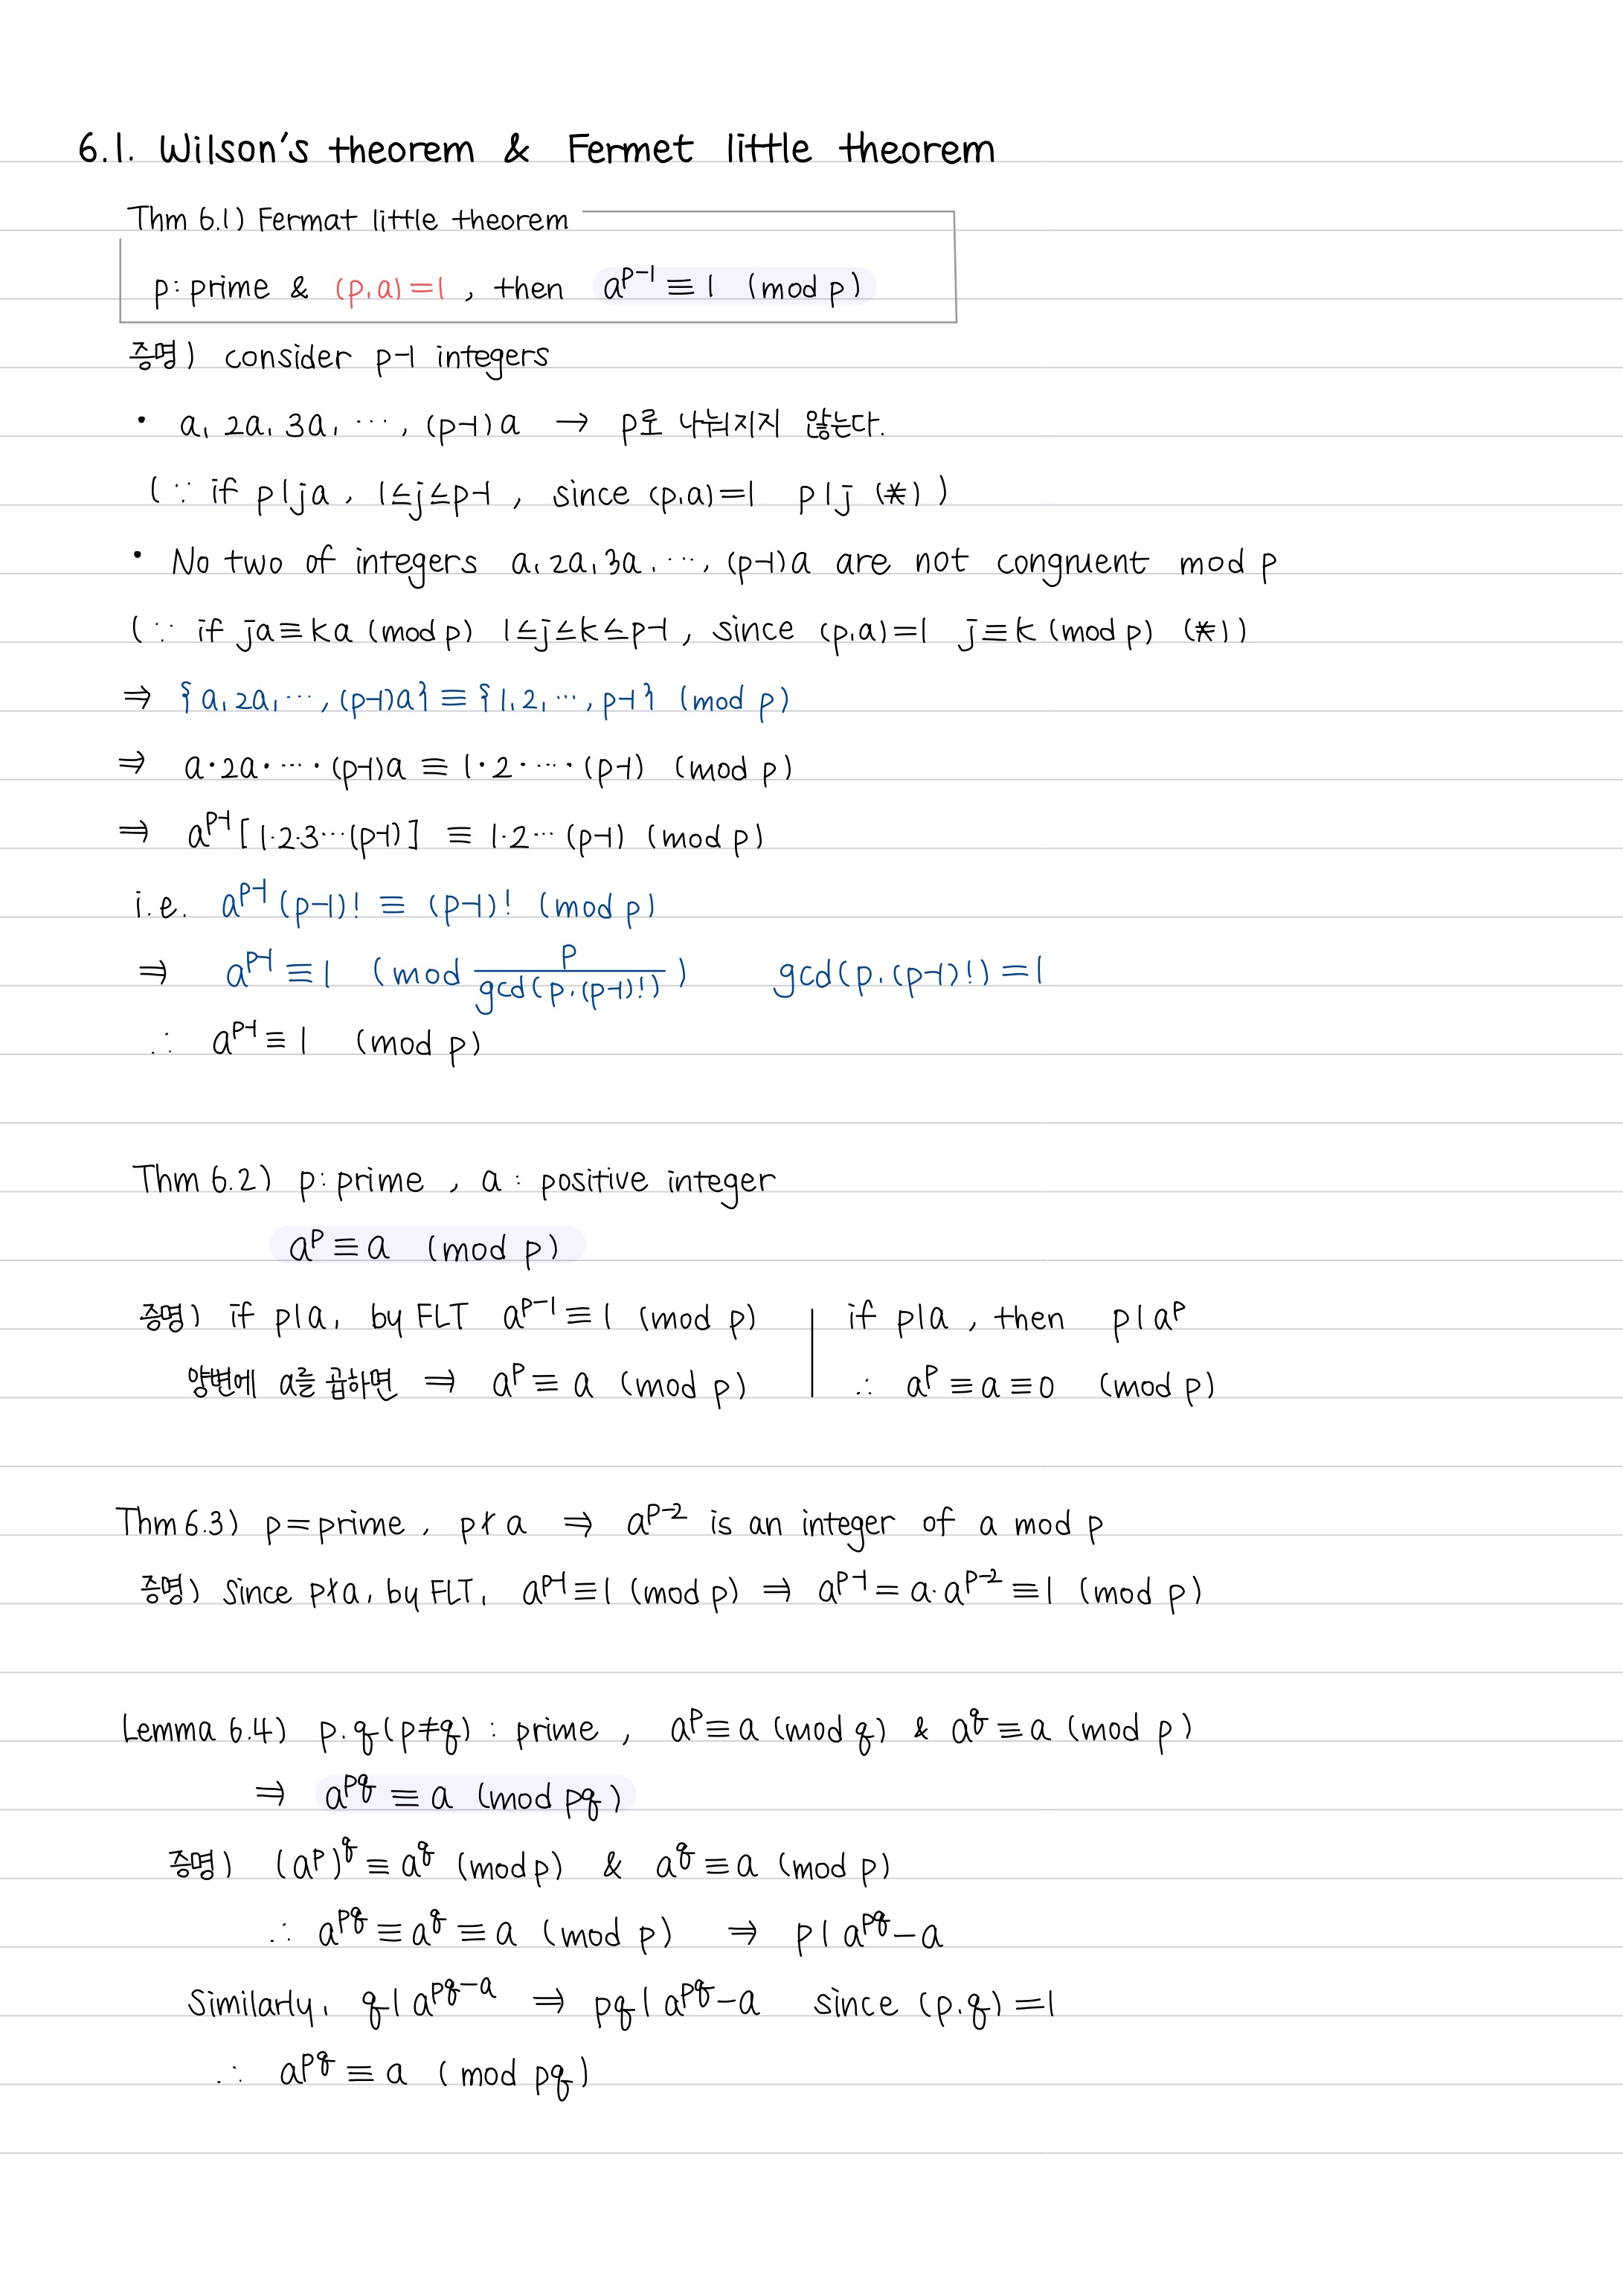 6.1. Wilson's theorem & Fermet little theorem
Thm 6.1) Fermat little theorem
p: prime & (p, a) = 1, then a^{p-1} ≡ 1 (mod p)
증명) consider p-1 integers
· a, 2a, 3a, ⋯, (p-1)a → p로 나눠지지 않는다.
(∵ if p|ja, 1≤j≤p-1, since (p, a)=1 p|j (※))
· No two of integers a, 2a, 3a, ⋯, (p-1)a are not congruent mod p
(∵ if ja≡ka (mod p) 1≤j≤k≤p-1, since (p, a)=1 j≡k (mod p) (※))
⇒ {a, 2a, ⋯, (p-1)a} ≡ {1, 2, ⋯, p-1} (mod p)
⇒ a·2a·⋯·(p-1)a ≡ 1·2·⋯·(p-1) (mod p)
⇒ a^{p-1}[1·2·3⋯(p-1)] ≡ 1·2⋯(p-1) (mod p)
i.e. a^{p-1}(p-1)! ≡ (p-1)! (mod p)
⇒ a^{p-1} ≡ 1 (mod p/gcd(p, (p-1)!)) gcd(p, (p-1)!) = 1
∴ a^{p-1} ≡ 1 (mod p)
Thm 6.2) p: prime, a: positive integer
a^p ≡ a (mod p)
증명) if p|a, by FLT a^{p-1} ≡ 1 (mod p) | if p|a, then p|a^p
양변에 a를 곱하면 ⇒ a^p ≡ a (mod p) | ∴ a^p ≡ a ≡ 0 (mod p)
Thm 6.3) p=prime, p∤a ⇒ a^{p-2} is an integer of a mod p
증명) Since p∤a, by FLT, a^{p-1}≡1 (mod p) ⇒ a^{p-1} = a·a^{p-2} ≡ 1 (mod p)
Lemma 6.4) p, q (p≠q): prime, a^p ≡ a (mod q) & a^q ≡ a (mod p)
⇒ a^{pq} ≡ a (mod pq)
증명) (a^p)^q ≡ a^q (mod p) & a^q ≡ a (mod p)
∴ a^{pq} ≡ a^q ≡ a (mod p) ⇒ p|a^{pq}-a
Similarly, q|a^{pq-a} ⇒ pq|a^{pq}-a since (p, q) = 1
∴ a^{pq} ≡ a (mod pq)